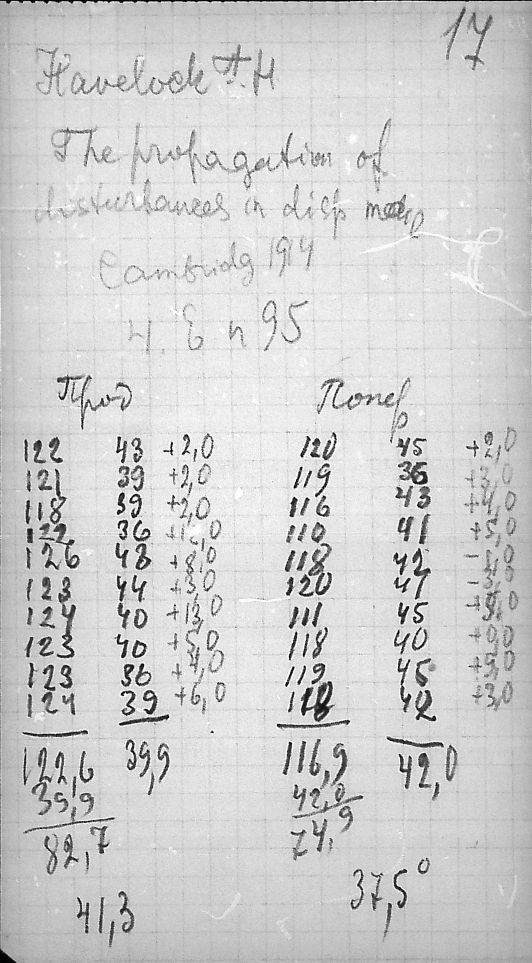 17
Havelock T. H
The propagation of
disturbances in disp
Cambridg 1914
Ч. Е п 95
Прод Попер
122 43 +2,0 120 45 +2,0
121 39 +2,0 119 36 +3,0
118 39 +2,0 116 43 +4,0
122 36 110 41 +5,0
126 48 +8,0 118 42
123 44 +3,0 120 41
124 40 +13,0 111 45
123 40 +5,0 118 40 +0,0
123 36 +4,0 119 45 +9,0
124 39 +6,0 118 42 +3,0
122,6 39,9 116,9 42,0
39,9 42,0
82,7 74,9
41,3 37,5°